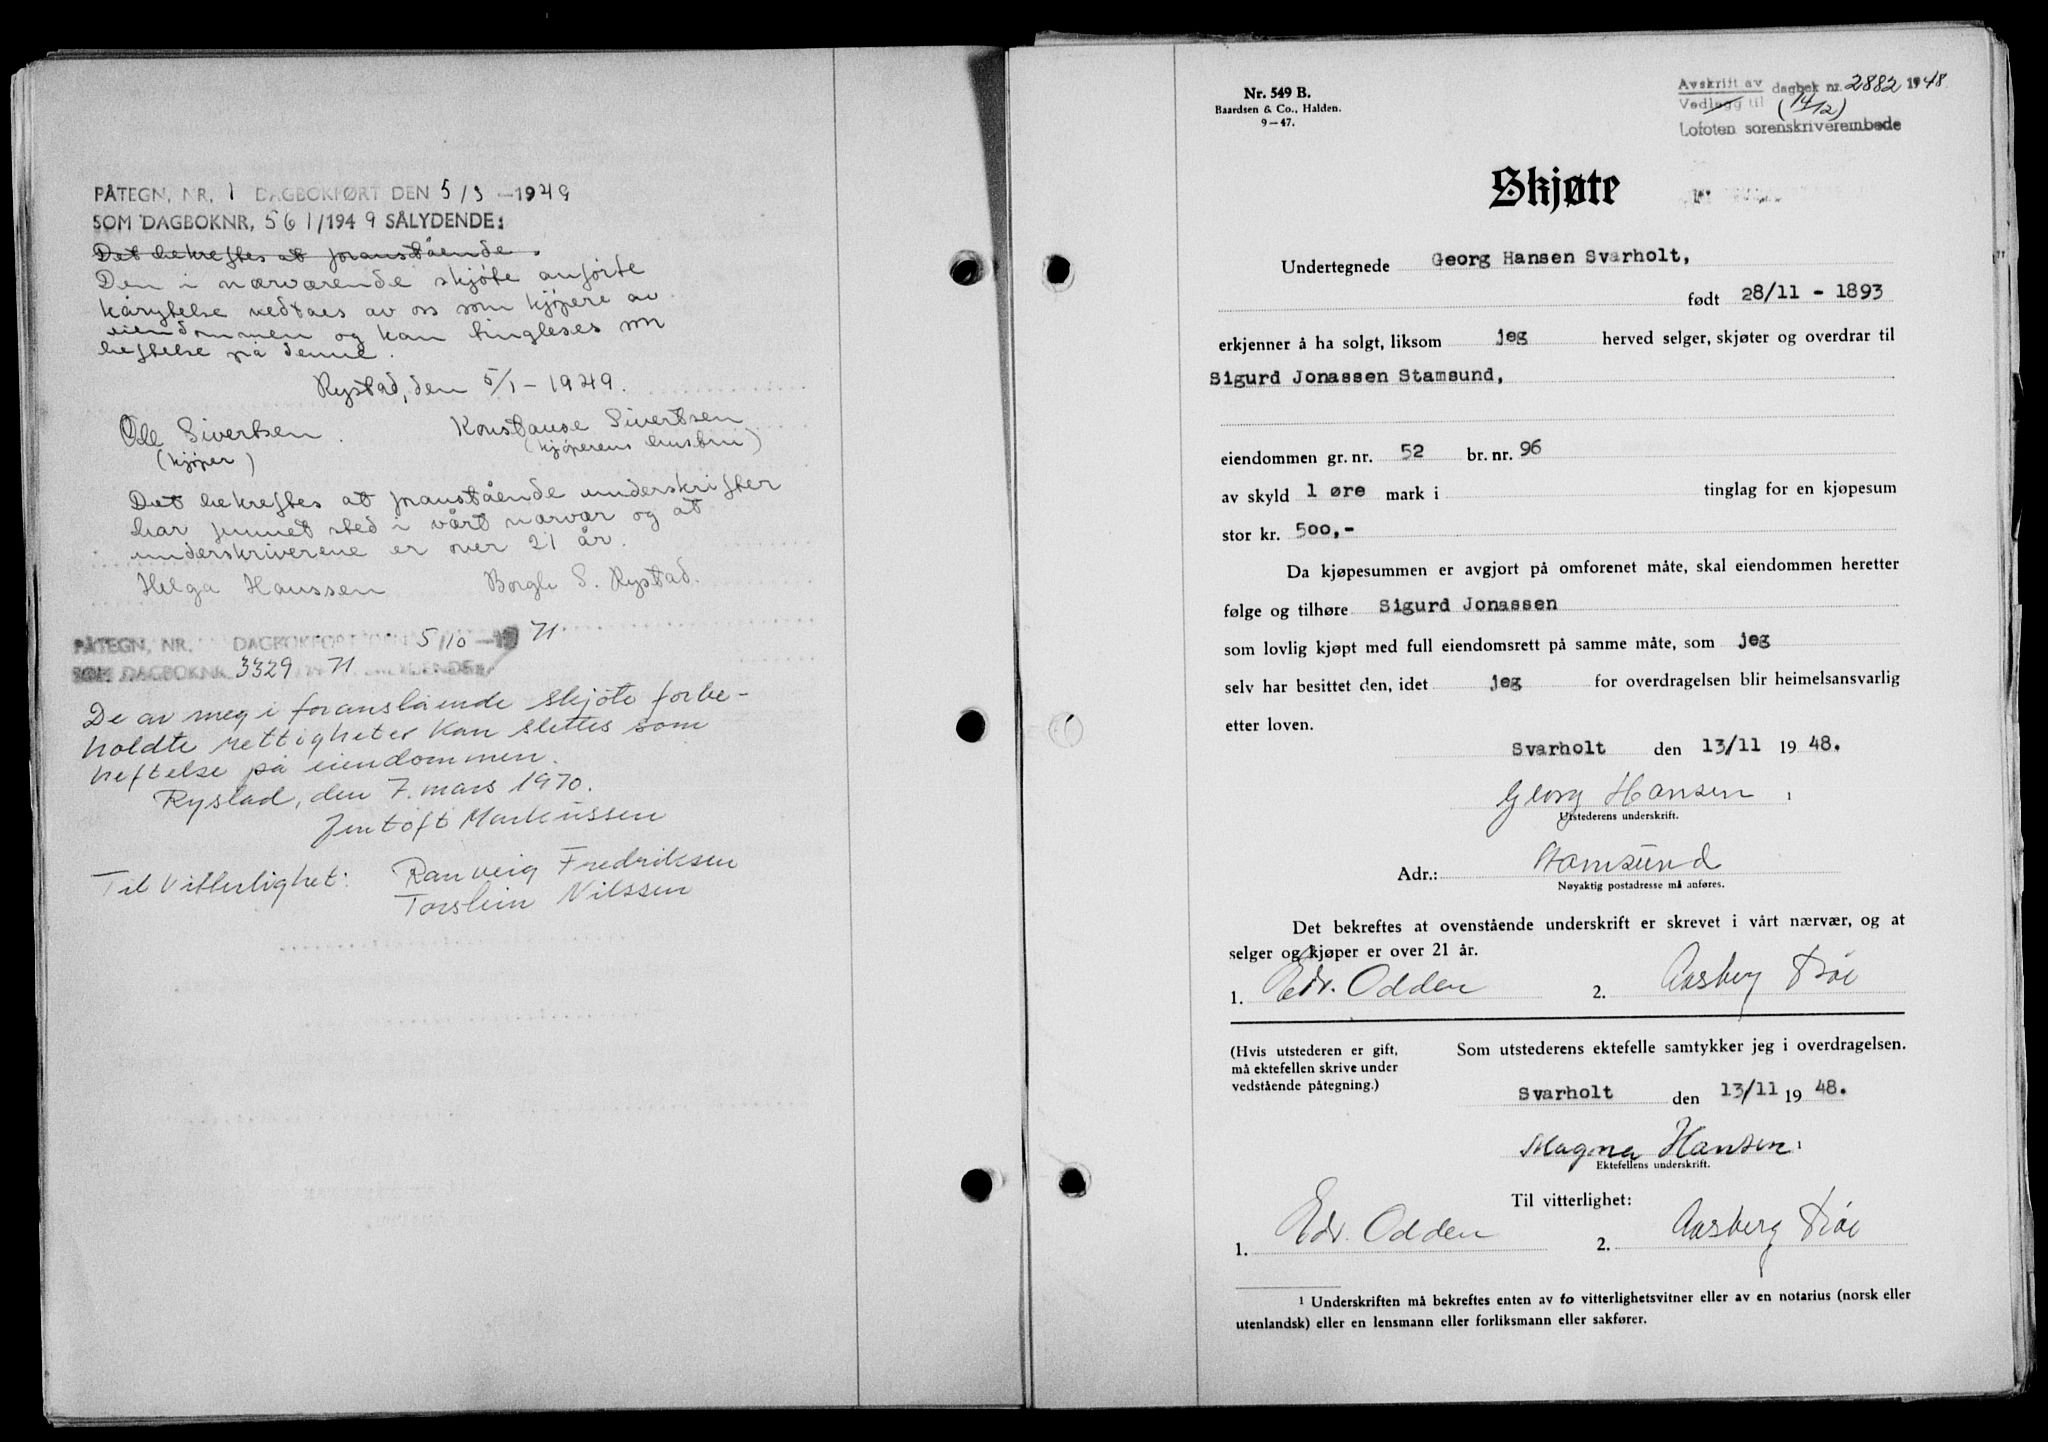 PÅTEGN, NR, 1 DAGBOKFØRT DEN 5/3 - 1949
SOM DAGBOKNR, 561/1949 SÅLYDENDE:
Det bekreftes at foranstående
Den i nærværende skjøte anførte
kårytelse vedtaes av oss som kjøpere av
eiendommen og kan tingleses som
heftelse på denne.
Rystad, den 5/1 - 1949.
Ole Sivertsen. Konstanse Sivertsen
(kjøper) (kjøperens hustru)
Det bekreftes at foranstående underskrifter
har funnet sted i vårt nærvær og at
underskriverene er over 21 år.
Helga Hanssen Borgh S. Rystad.
PÅTEGN, NR. DAGBOKFØRT DEN 5/10 - 1971
SOM DAGBOKNR. 3329 71 SÅLYDENDE:
De av meg i foranstående skjøte forbe-
holdte rettigheter kan slettes som
heftelse på eiendommen.
Rystad, den 7. mars 1970.
Jentoft Markussen
Til Vitterlighet: Ranveig Fredriksen
Torstein Nilssen
Nr. 549 B.
Baardsen & Co., Halden.
9-47.
Avskrift av dagbok nr. 2882 1948.
Vedlegg til (14/12)
Lofoten sorenskriverembede
Skjøte
Undertegnede Georg Hansen Svarholt,
født 28/11 - 1893
erkjenner å ha solgt, liksom jeg herved selger, skjøter og overdrar til
Sigurd Jonassen Stamsund,
eiendommen gr. nr. 52 br. nr. 96
av skyld 1 øre mark i tinglag for en kjøpesum
stor kr. 500,-
Da kjøpesummen er avgjort på omforenet måte, skal eiendommen heretter
følge og tilhøre Sigurd Jonassen
som lovlig kjøpt med full eiendomsrett på samme måte, som jeg
selv har besittet den, idet jeg for overdragelsen blir heimelsansvarlig
etter loven.
Svarholt den 13/11 1948.
Georg Hansen 1
Utstederens underskrift.
Adr.: Stamsund
Nøyaktig postadresse må anføres.
Det bekreftes at ovenstående underskrift er skrevet i vårt nærvær, og at
selger og kjøper er over 21 år.
1. Edv. Odden 2. Aasberg Bøe
(Hvis utstederen er gift, Som utstederens ektefelle samtykker jeg i overdragelsen.
må ektefellen skrive under
vedstående påtegning.)
Svarholt den 13/11 1948.
Magna Hansen 1
Ektefellens underskrift.
Til vitterlighet:
1. Edv. Odden 2. Aasberg Bøe
1 Underskriften må bekreftes enten av to vitterlighetsvitner eller av en notarius (norsk eller
utenlandsk) eller en lensmann eller forliksmann eller sakfører.